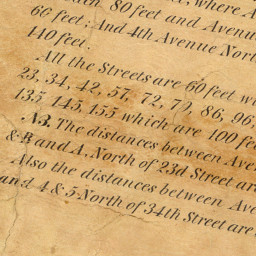 80 feet and Avenu
66 feet; And 4th Avenue North
140 feet.
All the Streets are 60 feet wi
23, 34, 42, 57, 72, 79, 86, 96,
135, 145, 155 which are 100 fee
N3. The distances between Ave
& B and A, North of 23d Street are
Also the distances between Ave
and 4 & 5 North of 34th Street are